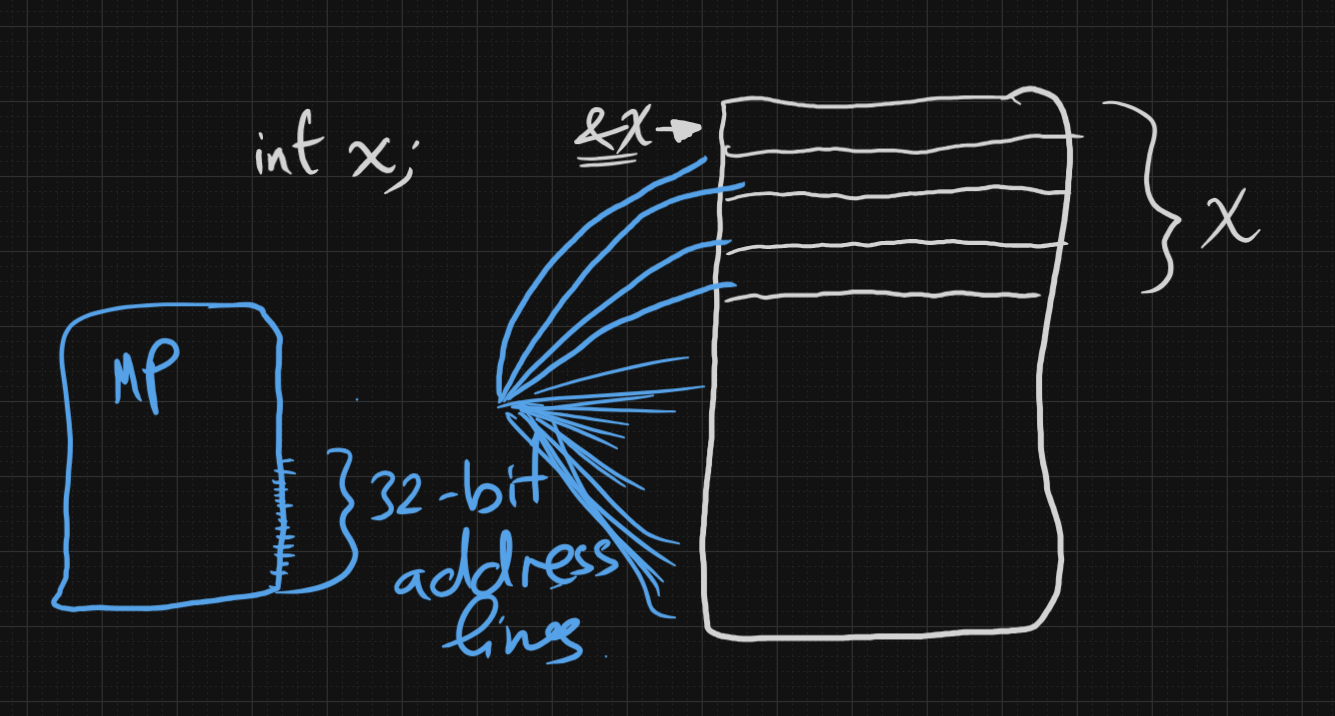 int x;
&x
x
MP
32-bit
address
lines